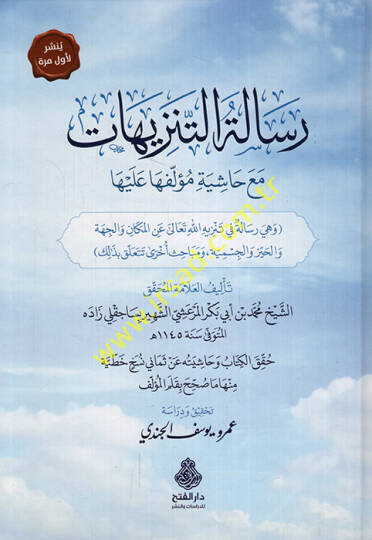 يُنشر
لأول مرة
رسالة التنزيهات
مع حاشية مؤلفها عليها
(وهي رسالة في تنزيه الله تعالى عن المكان والجهة
والحيز والجسمية، ومباحث أخرى تتعلق بذلك)
تأليف العلامة المحقق
الشيخ محمد بن أبي بكر المرعشي الشهير بساجقلي زاده
المتوفى سنة ١١٤٥هـ
حقق الكتاب وحاشيته عن ثماني نسخ خطية
منها ما صحح بقلم المؤلف
تحقيق ودراسة
عمرو يوسف الجندي
دار الفتح
للدراسات والنشر
www.irsad.com.tr